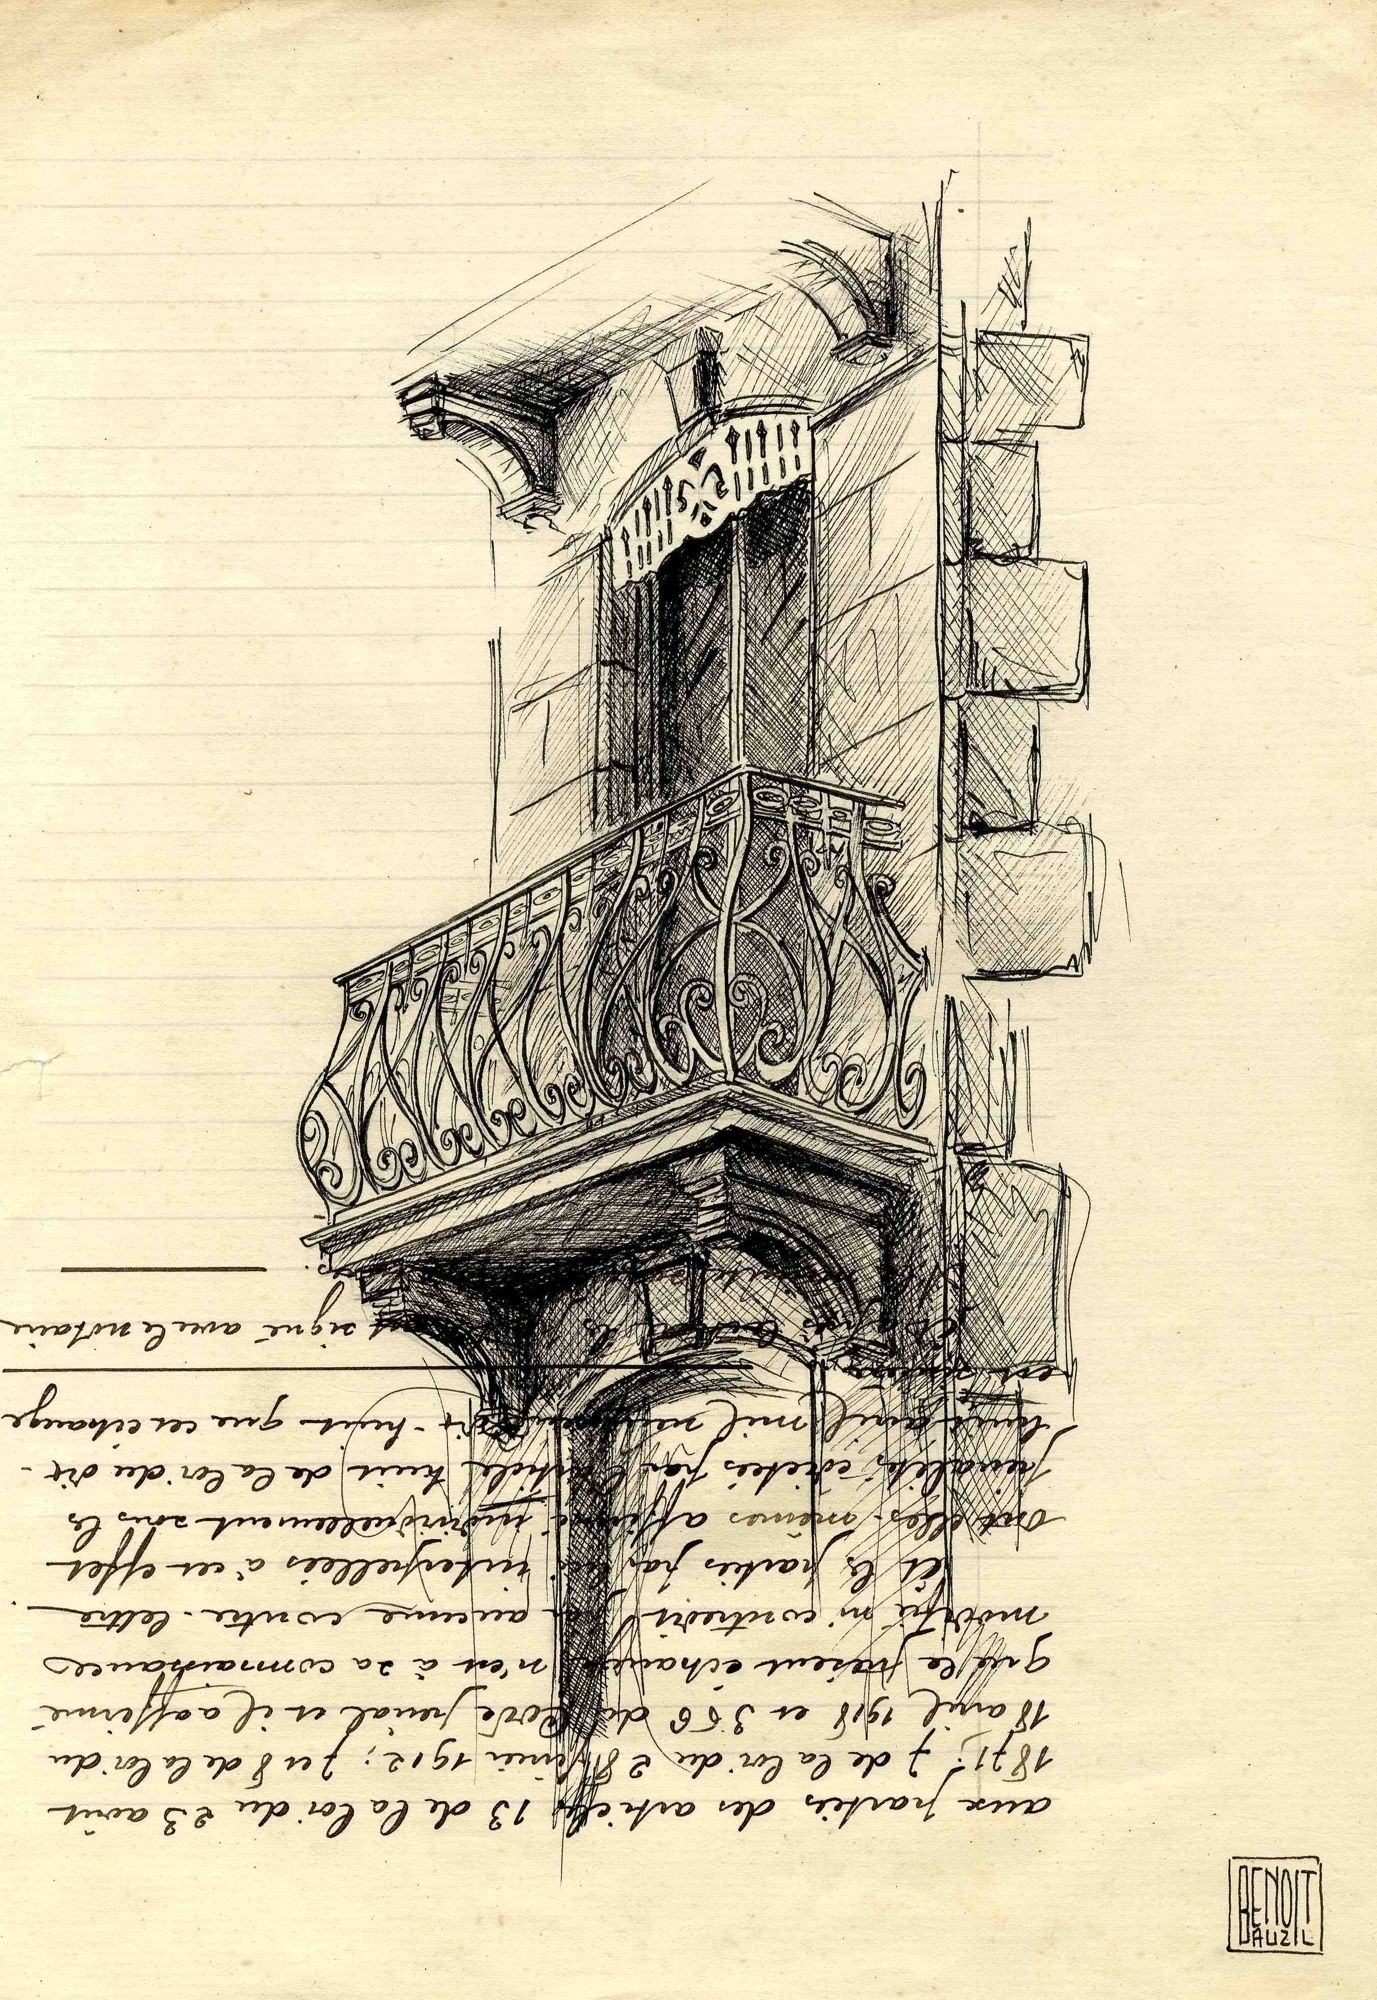 aux parties des articles 13 de la loi du 23 août
1871; 7 de la loi du 28 février 1912; 7 et 8 de la loi du
18 avril 1918 et 366 du Code pénal et il a affirmé
que le présent échange n'est à sa connaissance
modifié ni contredit par aucune contre-lettre
Et les parties par lui interpellées à cet effet
ont elles-mêmes affirmé individuellement sous les
pénalités édictées par l'article huit de la loi du dix-
huit avril mil neuf cent dix-huit que cet échange
en
Et après lecture ils ont signé avec le notaire
BENOIT
BAUZIL